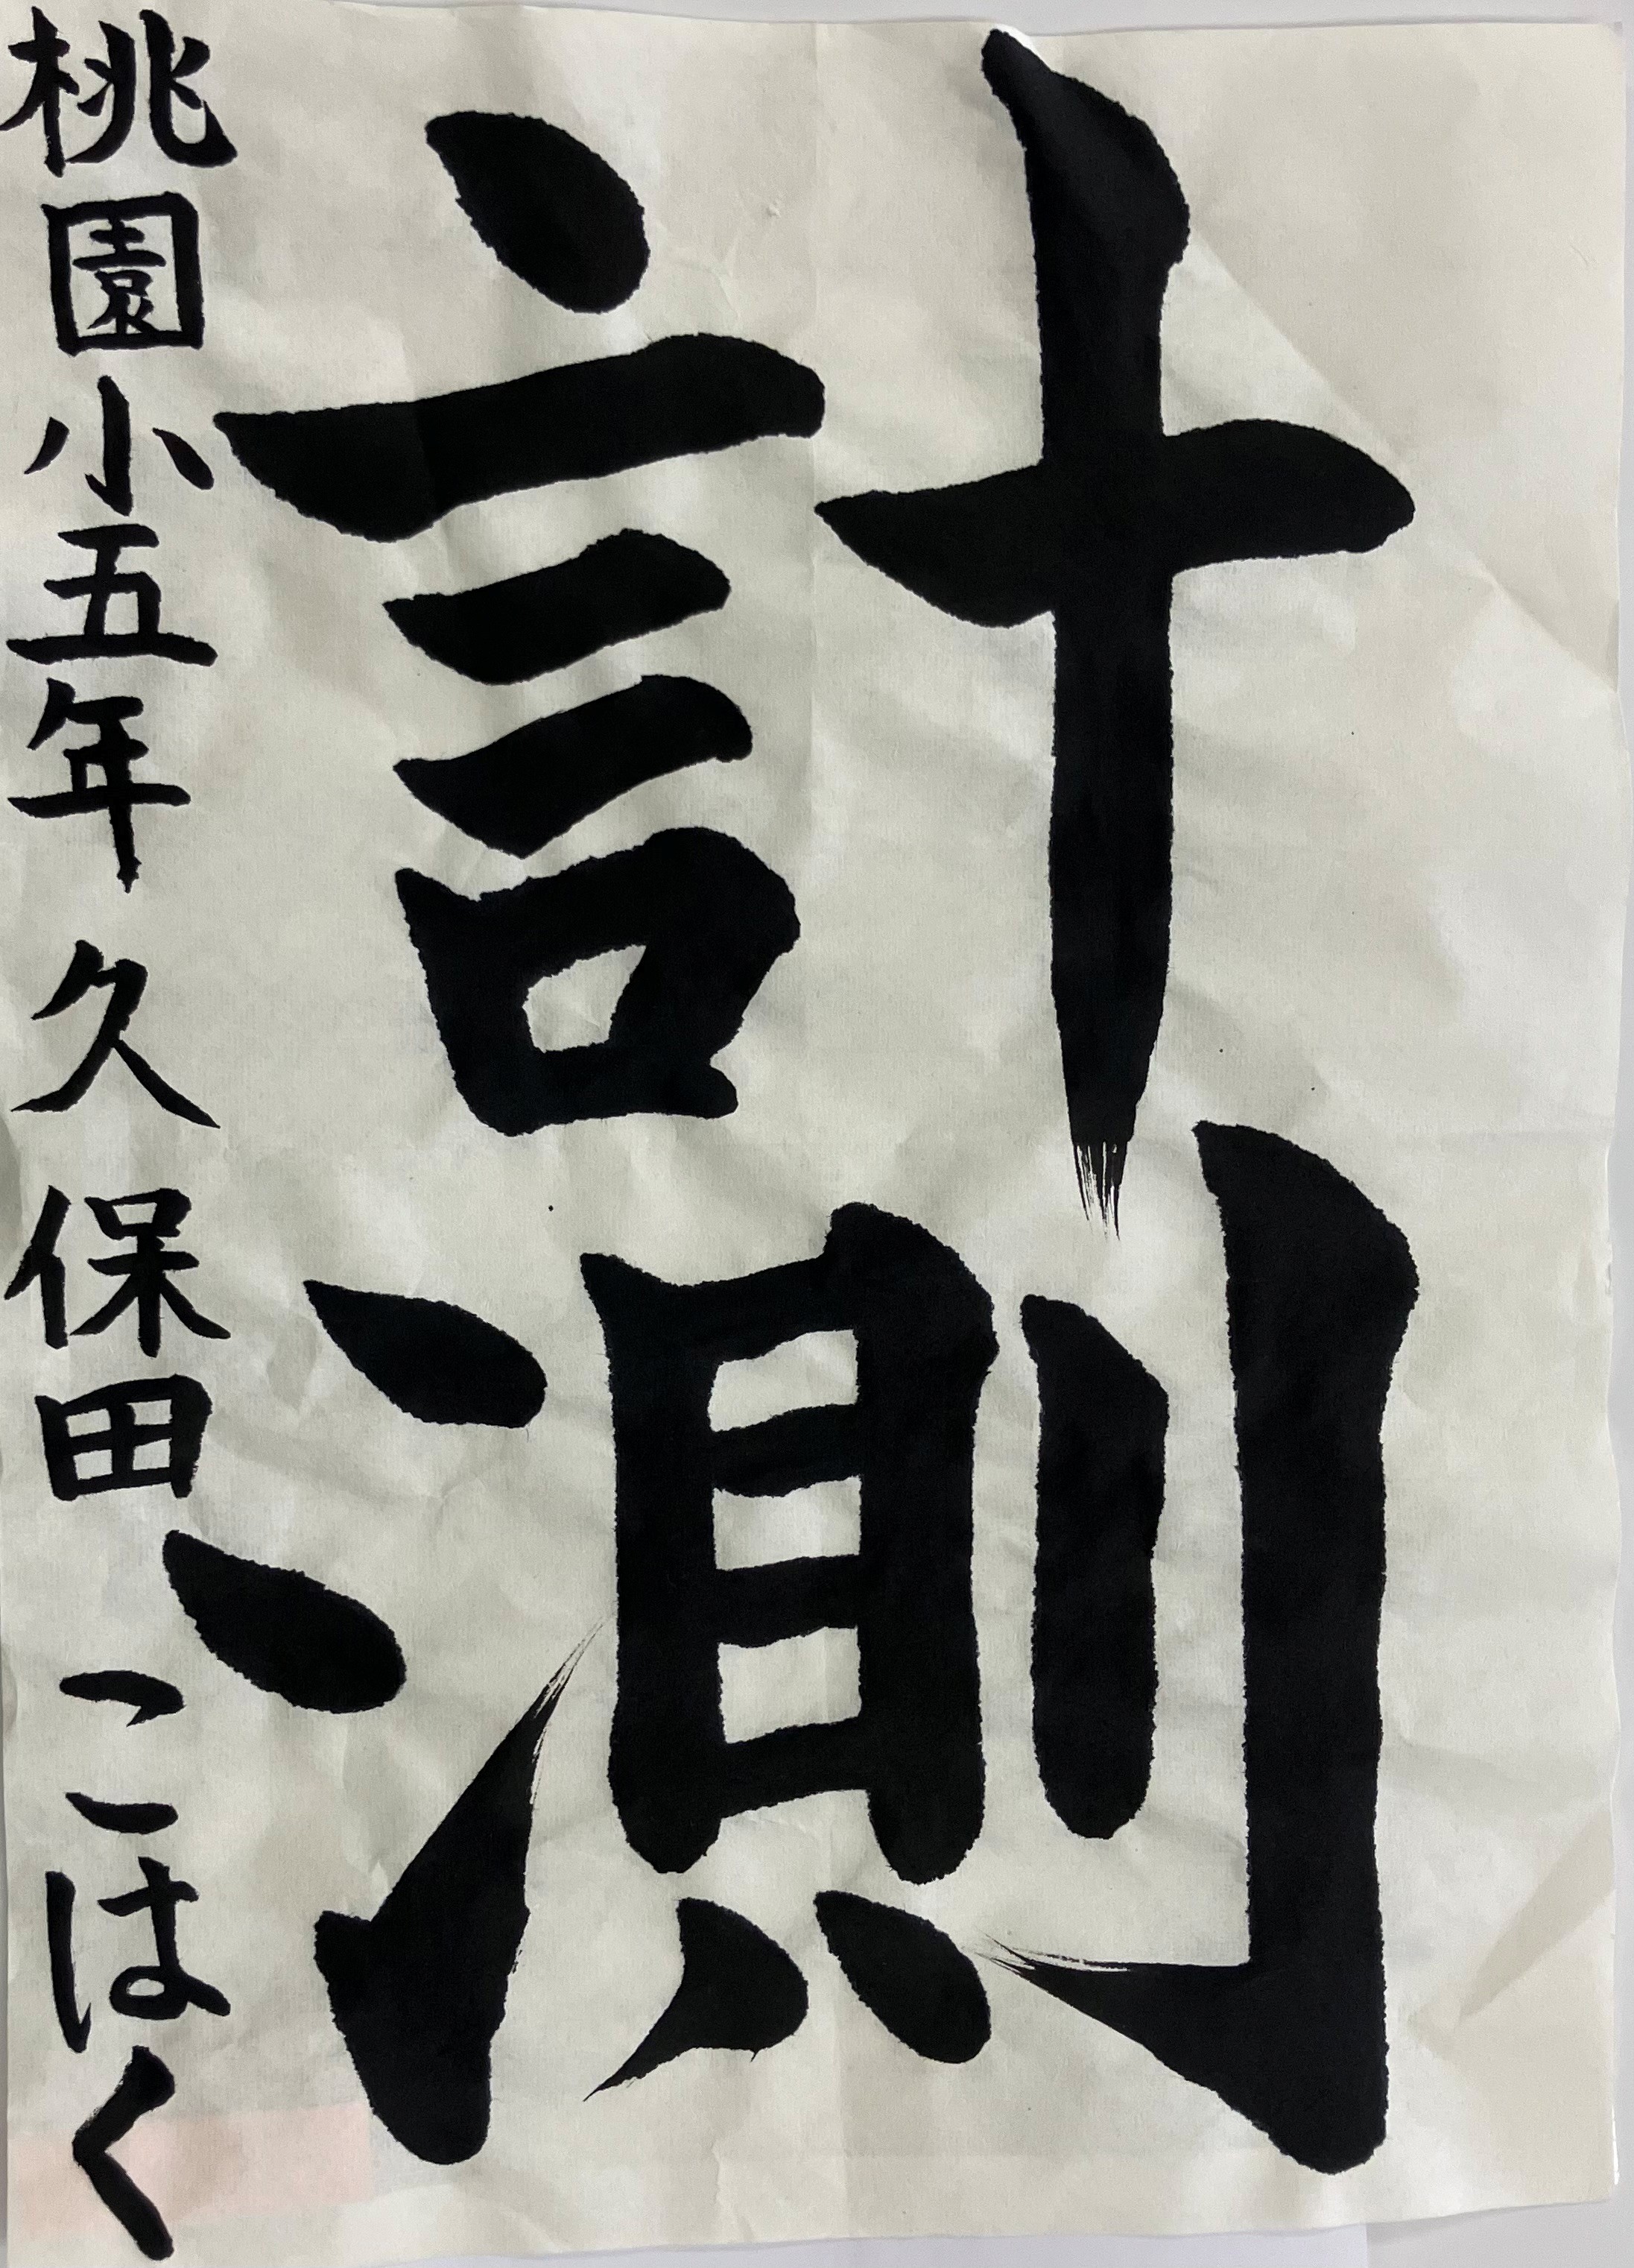 計測
桃園小五年 久保田こはく